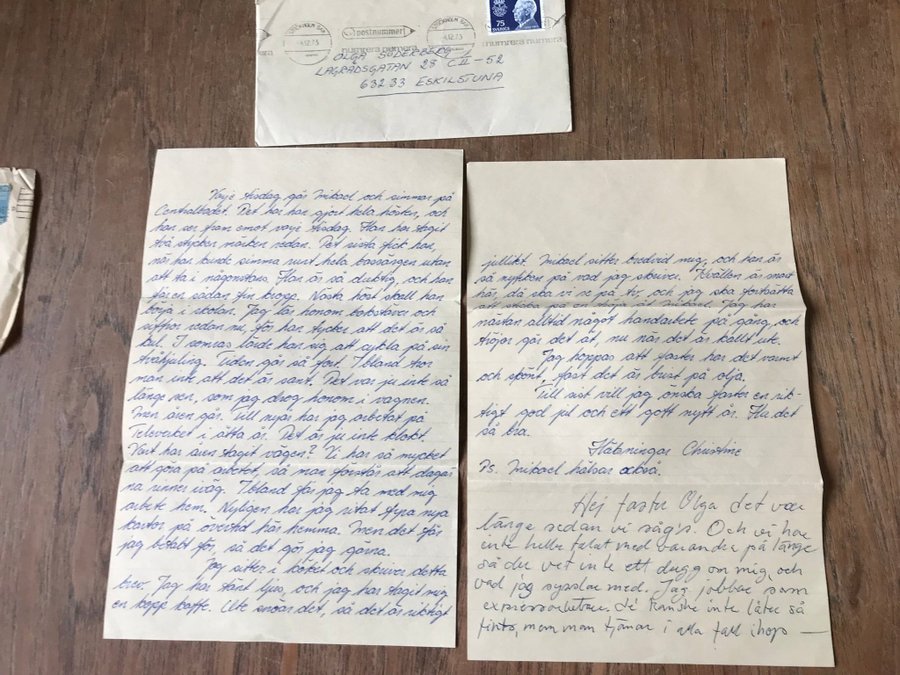 STOCKHOLM BAN
-4.12.73
postnummer
-4.12.73
numrera numera
numrera numera
75
SVERIGE
OLGA SÖDERBERG
LAGRÅDSGATAN 28 C II - 52
632 33 ESKILSTUNA
Varje tisdag går Mikael och simmar på
Centralbadet. Det har han gjort hela hösten, och
han ser fram emot varje tisdag. Han har tagit
två stycken märken redan. Det sista fick han,
när han kunde simma runt hela bassängen utan
att ta i någonstans. Han är så duktig, och han
får en sådan fin kropp. Nästa höst skall han
börja i skolan. Jag lär honom bokstäver och
siffror redan nu, för han tycker att det är så
kul. I somras lärde han sig att cykla på sin
tvåhjuling. Tiden går så fort. Ibland tror
man inte att det är sant. Det var ju inte så
länge sen, som jag drog honom i vagnen.
Men åren går. Till nyår har jag arbetat på
Televerket i åtta år. Det är ju inte klokt.
Vart har åren tagit vägen? Vi har så mycket
att göra på arbetet, så man förstår att dagar-
na rinner iväg. Ibland får jag ta med mig
arbete hem. Nyligen har jag ritat fyra nya
kartor på övertid här hemma. Men det får
jag betalt för, så det gör jag gärna.
Jag sitter i köket och skriver detta
brev. Jag har tänt ljus, och jag har tagit mig
en kopp kaffe. Ute snöar det, så det är riktigt
jullikt. Mikael sitter bredvid mig, och han är
så nyfiken på vad jag skriver. Kvällen är snart
här, då ska vi se på tv, och jag ska fortsätta
att sticka på en tröja åt Mikael. Jag har
nästan alltid något handarbete på gång, och
tröjor går det åt, nu när det är kallt ute.
Jag hoppas att faster har det varmt
och skönt, fast det är brist på olja.
Till sist vill jag önska faster en rik-
tigt god jul och ett gott nytt år. Ha det
så bra.
Hälsningar Christine
Ps. Mikael hälsar också.
Hej faster Olga det var
länge sedan vi såg's. Och vi har
inte heller talat med varandra på länge
så du vet inte ett dugg om mig, och
vad jag sysslar med. Jag jobbar som
det kanske inte låter så
fint, men man tjänar i alla fall ihop —